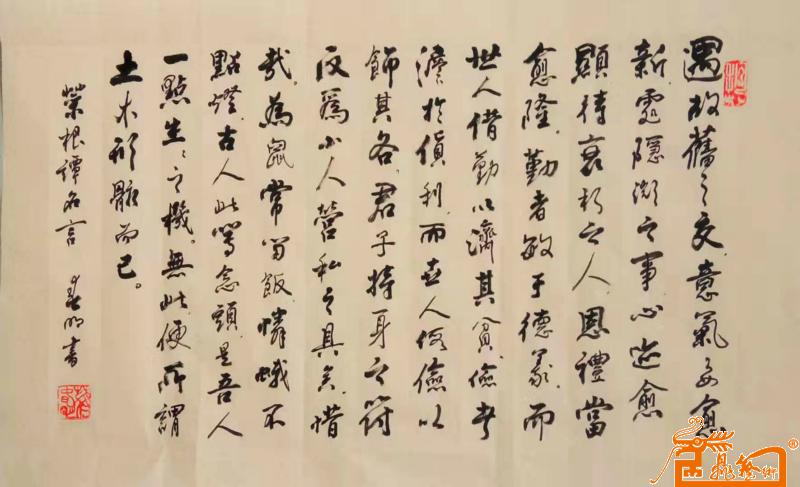 遇故舊之交意氣要愈
新處隱微之事心迹愈
顯待衰朽之人恩禮當
愈隆勤者敏于德義而
世人借勤以濟其貧儉者
澹於貨利而世人假儉以
飾其吝君子持身之符
反為小人營私之具矣惜
哉為鼠常留飯憐蛾不
點燈古人此等念頭是吾人
一點生之機無此便所謂
土木形骸而已。
菜根譚名言 書